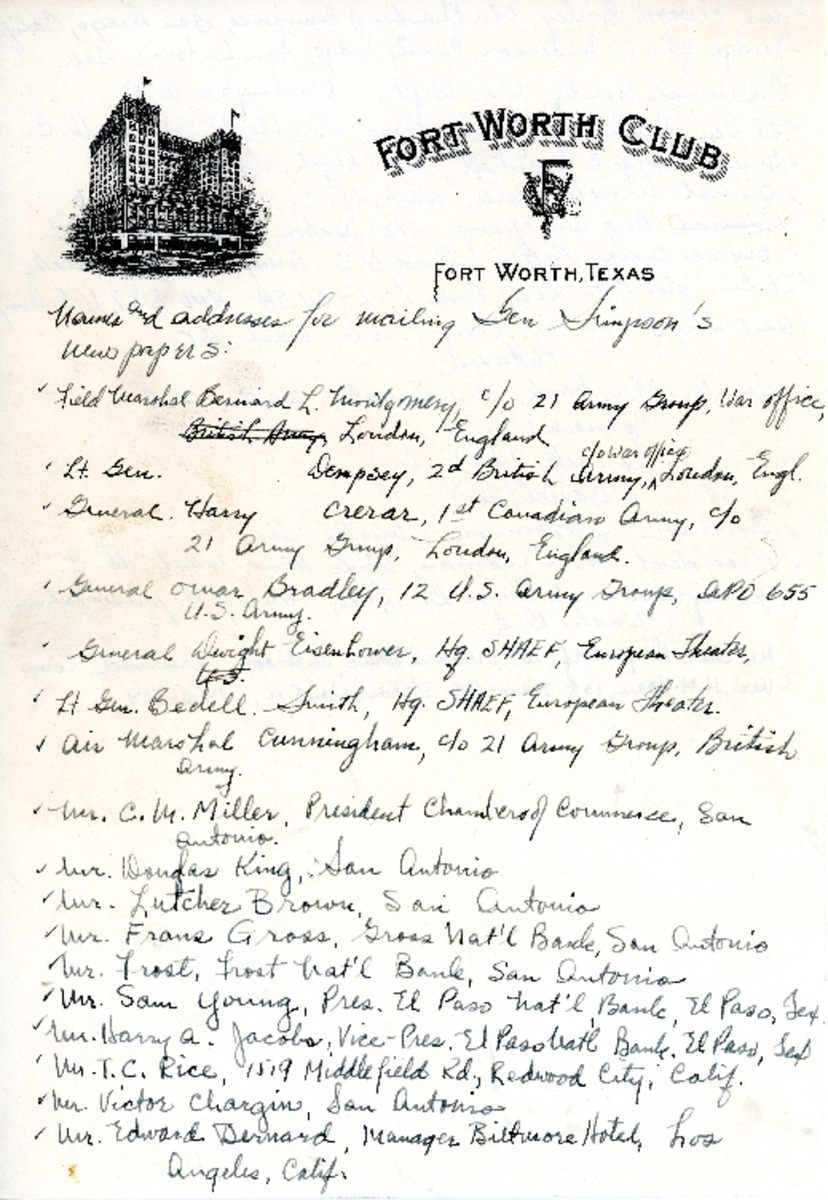 FORT WORTH CLUB
FORT WORTH, TEXAS
Names and addresses for mailing Gen Simpson's
newspapers:
✓ Field Marshal Bernard L. Montgomery, c/o 21 Army Group, War office,
British Army, London, England
c/o War office
✓ Lt. Gen. Dempsey, 2d British Army, ^ London, Engl.
✓ General Harry Crerar, 1st Canadian Army, c/o
21 Army Group, London, England.
✓ General Omar Bradley, 12 U.S. Army Group, APO 655
U.S. Army.
✓ General Dwight Eisenhower, Hq. SHAEF, European Theater,
U.S.
✓ Lt Gen. Bedell Smith, Hq. SHAEF, European Theater.
✓ Air Marshal Cunningham, c/o 21 Army Group, British
Army.
✓ Mr. C. M. Miller, President Chamber of Commerce, San
Antonio.
✓ Mr. Douglas King, San Antonio
✓ Mr. Lutcher Brown, San Antonio
✓ Mr. Frans Gross, Gross Nat'l Bank, San Antonio
✓ Mr. Frost, Frost Nat'l Bank, San Antonio
✓ Mr. Sam Young, Pres. El Paso Nat'l Bank, El Paso, Tex.
✓ Mr. Harry A. Jacobs, Vice-Pres. El Paso Natl Bank. El Paso, Tex
✓ Mr. T. C. Rice, 1519 Middlefield Rd., Redwood City, Calif.
✓ Mr. Victor Chargin, San Antonio
✓ Mr. Edward Bernard, Manager Biltmore Hotel, Los
Angeles, Calif.